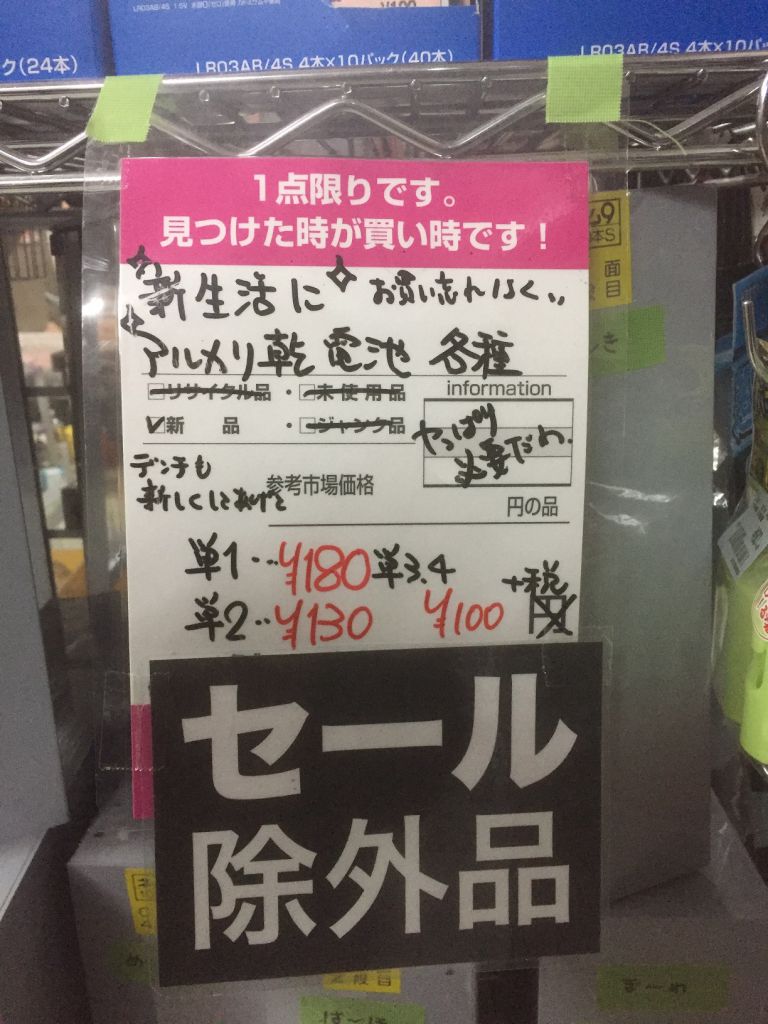 LR03AB/4S 1.5V
¥100
ク(24本)
LR03AB/4S 4本×10パック(40本)
LR03AB/4S 4本×10パッ
1点限りです。
見つけた時が買い時です！
新生活に お買い忘れなく、、
アルカリ乾電池 各種
リサイクル品 ・ 未使用品
新 品 ・ ジャンク品
information
やっぱり
必要だわ.
デンチも
新しくしてあげて
参考市場価格
円の品
単1…¥180 単3.4
単2‥¥130 ¥100 +税
円
セール
除外品
面
目
き
2段目